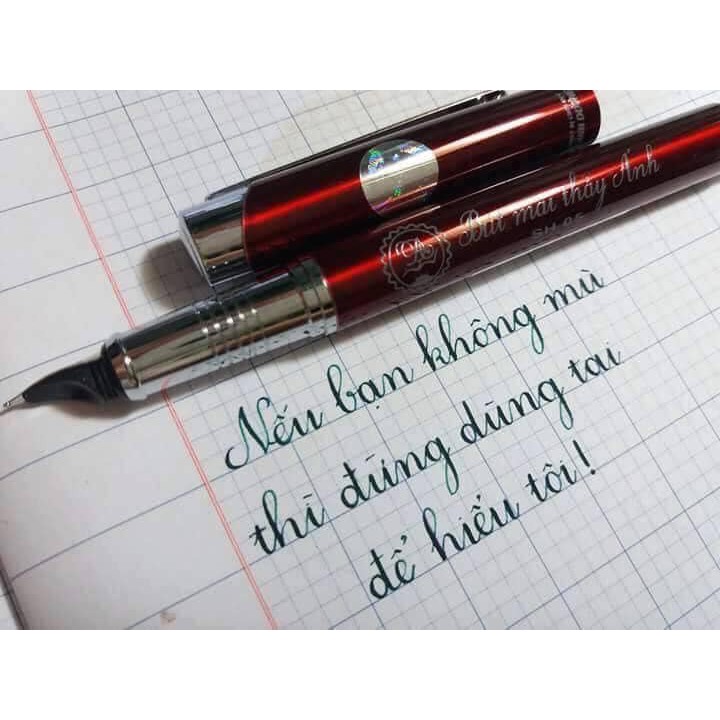 Bút mài thầy Ánh
Nếu bạn không mù
thì đừng dùng tai
để hiểu tôi!